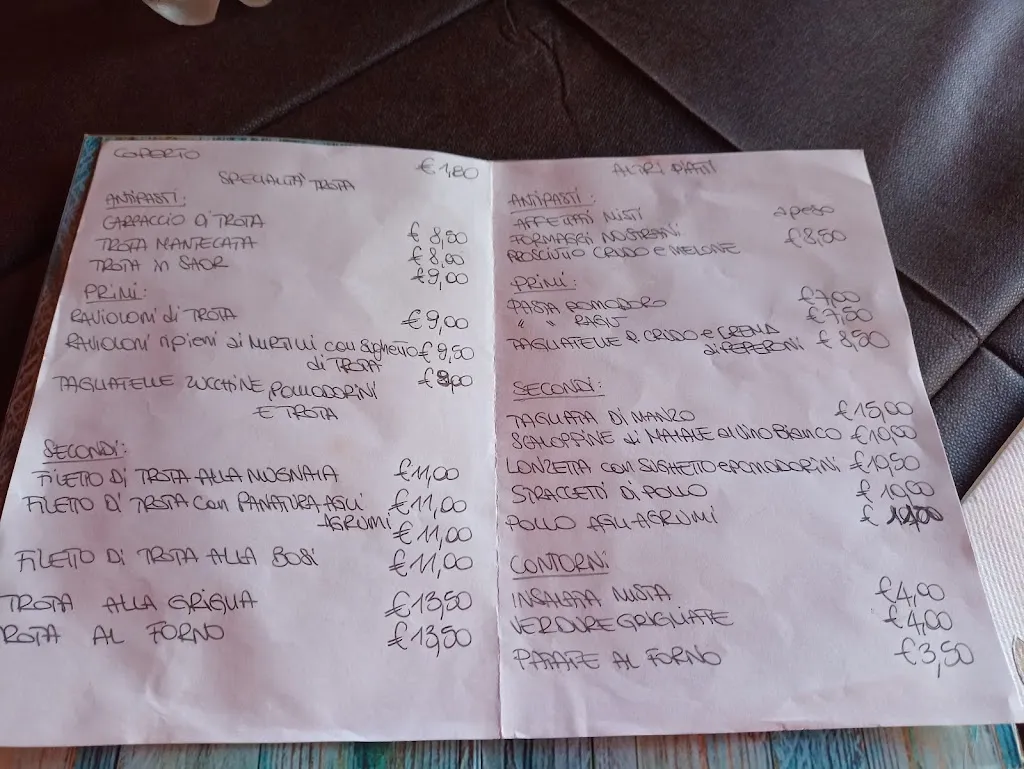 COPERTO € 1,80
SPECIALITA' TROTA
ANTIPASTI:
CARPACCIO DI TROTA € 8,50
TROTA MANTECATA € 8,00
TROTA IN SAOR € 9,00
PRIMI:
RAVIOLONI di TROTA € 9,00
RAVIOLONI ripieni di MIRTILLI con SUGHETTO € 9,50
di TROTA
TAGLIATELLE ZUCCHINE POMODORINI
E TROTA
SECONDI:
FILETTO DI TROTA ALLA MUGNAIA € 11,00
FILETTO DI TROTA con PANATURA AGLI € 11,00
AGRUMI € 11,00
FILETTO DI TROTA ALLA BOSI € 11,00
TROTA ALLA GRIGLIA € 13,50
TROTA AL FORNO € 13,50
ALTRI PIATTI
ANTIPASTI:
AFFETTATI MISTI a peso
FORMAGGI NOSTRANI € 8,50
PROSCIUTTO CRUDO e MELONE
PRIMI:
PASTA POMODORO € 7,00
" " RAGU' € 7,50
TAGLIATELLE P. CRUDO e CREMA
di PEPERONI € 8,50
SECONDI:
TAGLIATA DI MANZO € 15,00
SCALOPPINE di MAIALE al Vino Bianco € 10,00
LONZETTA con SUGHETTO e POMODORINI € 10,50
STRACCETTI DI POLLO € 10,00
POLLO AGLI AGRUMI €
CONTORNI
INSALATA MISTA € 4,00
VERDURE GRIGLIATE € 4,00
PATATE AL FORNO € 3,50